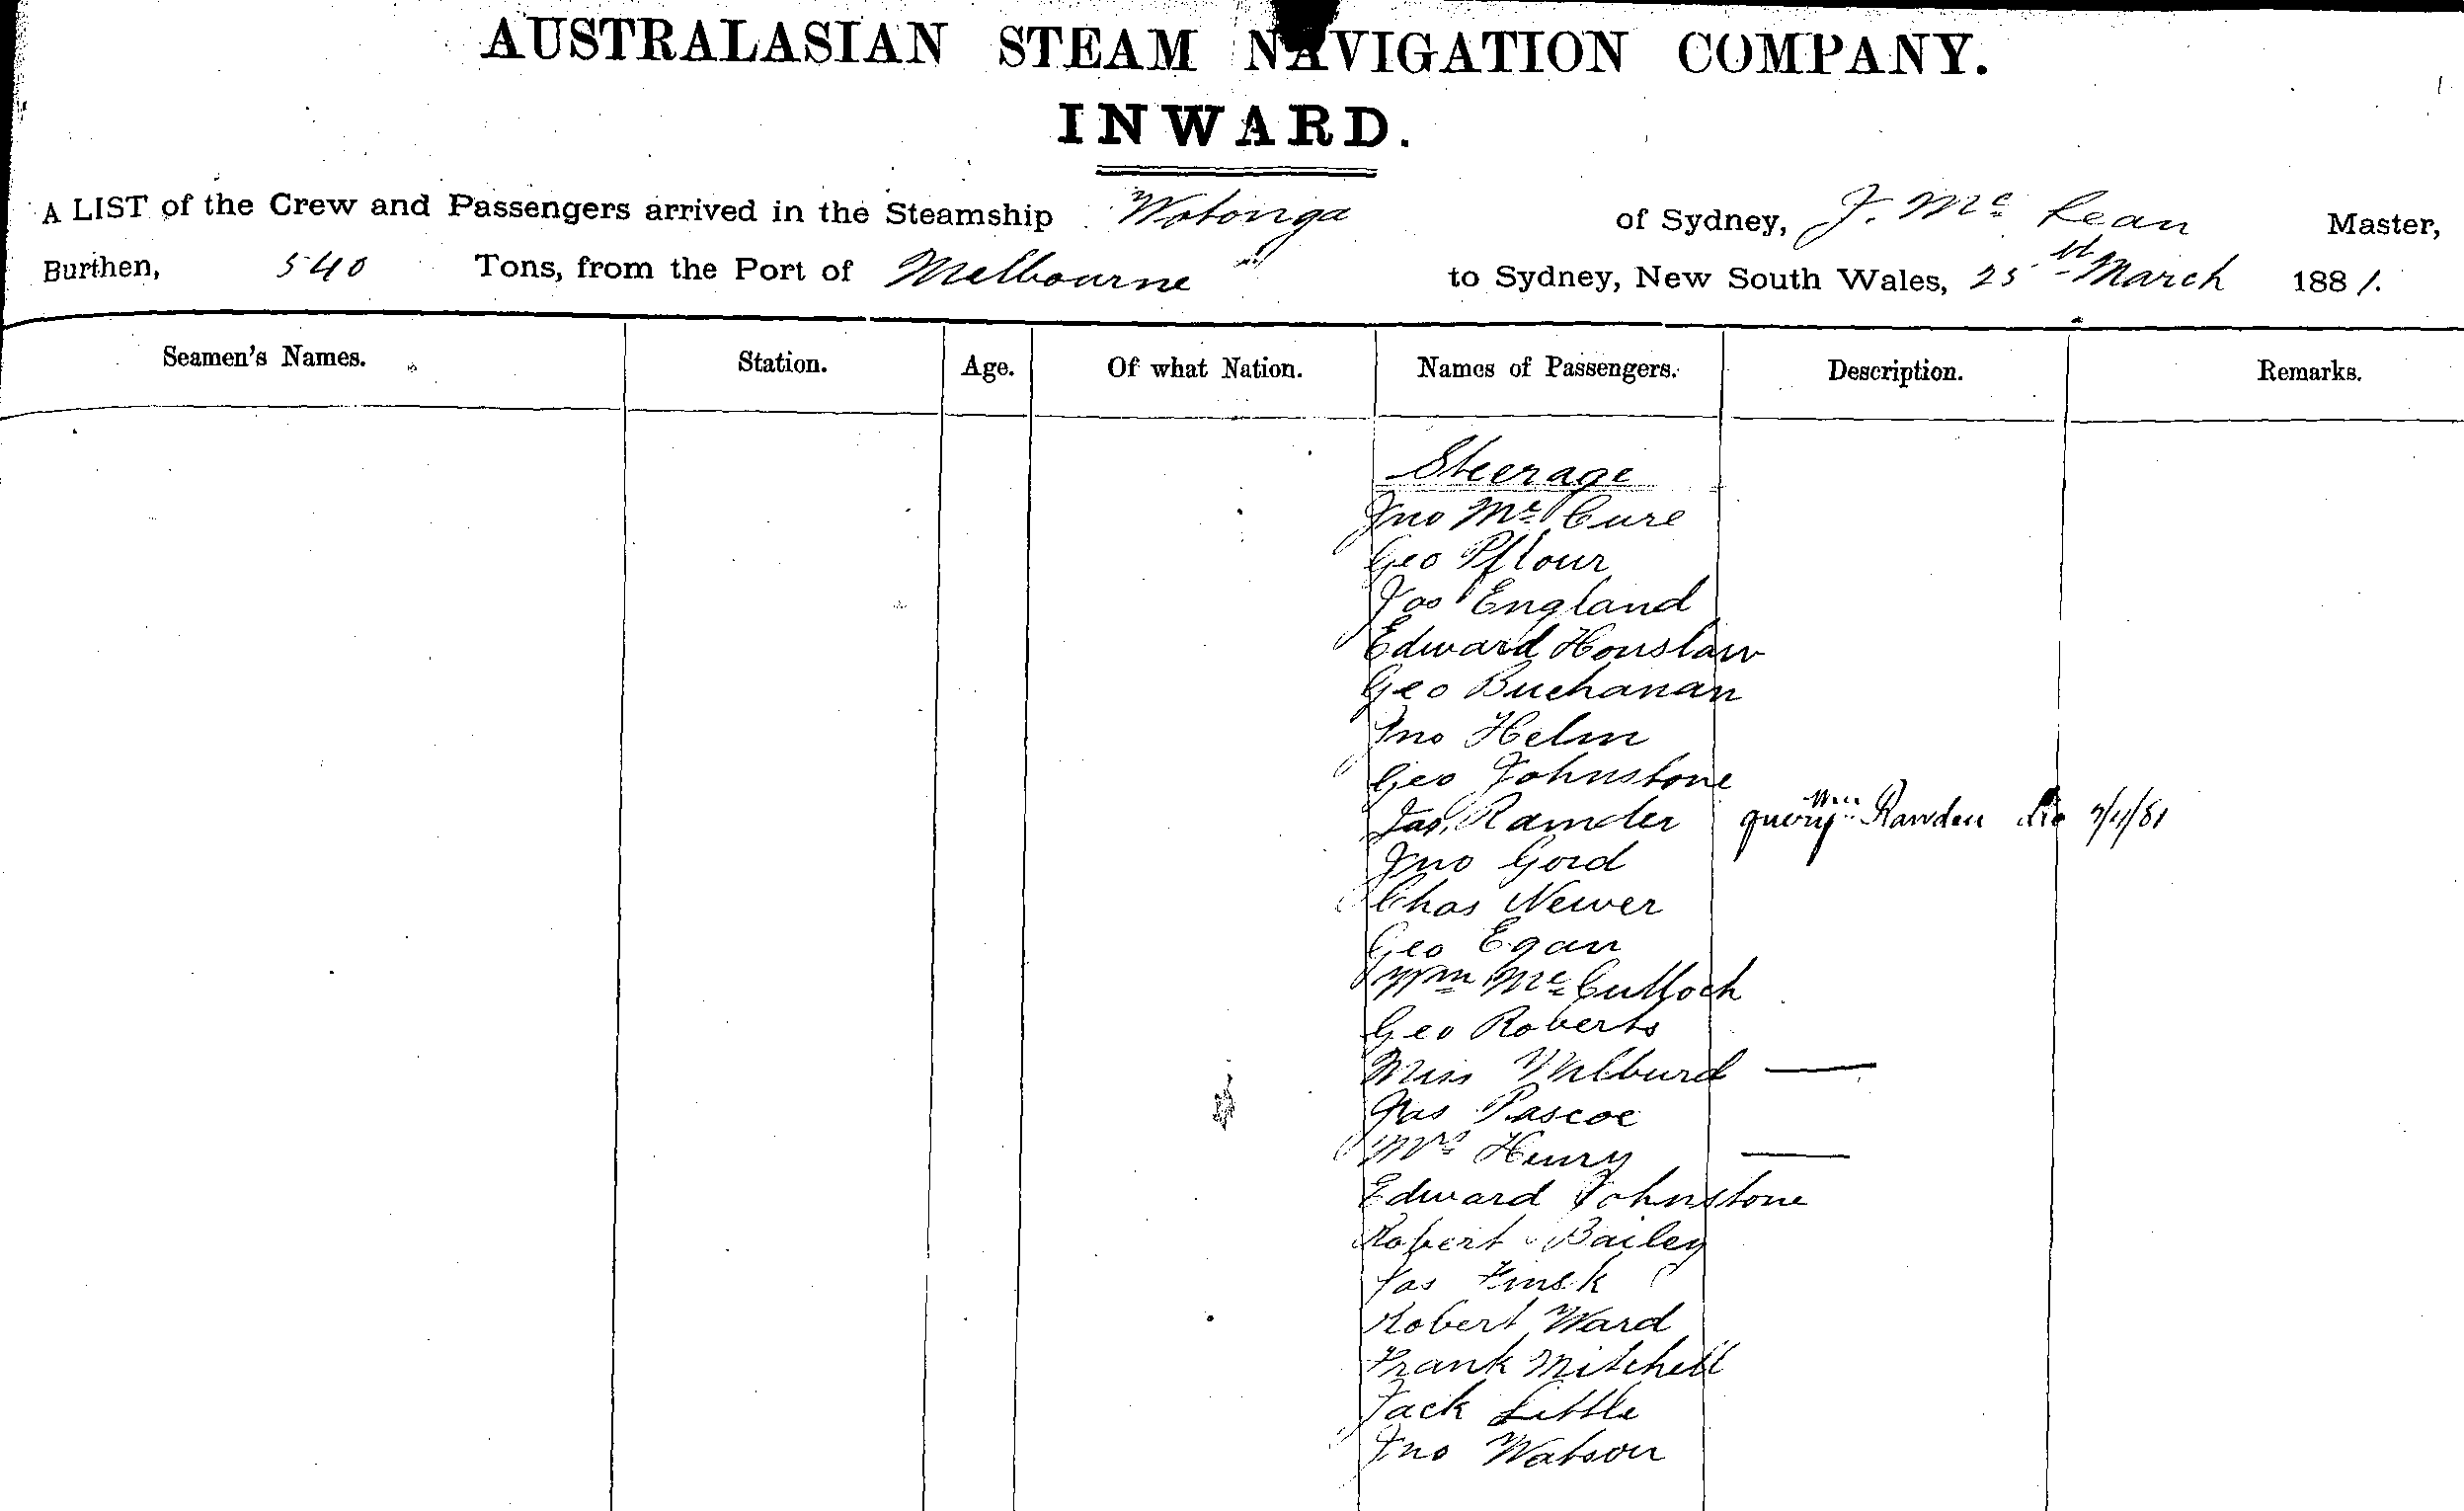 AUSTRALASIAN STEAM NAVIGATION COMPANY.
INWARD.
A LIST of the Crew and Passengers arrived in the Steamship Wotonga of Sydney, J. Mc Lean Master,
Burthen, 540 Tons, from the Port of Melbourne to Sydney, New South Wales, 25 March 1881.
Seamen's Names. Station. Age. Of what Nation. Names of Passengers. Description. Remarks.
Steerage
Jno Mc Cure
Geo Pflour
Jas England
Edward Honslaw
Geo Buchanan
Jno Helm
Geo Johnstone
Jas Ramder query Wm Rawden 7/4/81
Jno Gord
Chas Newer
Geo Egan
Wm Mc Culloch
Geo Roberts
Miss Milburd —
Jas Pascoe
Mrs Henry —
Edward Johnstone
Robert Bailey
Jas
Robert Ward
Frank Mitchell
Jack Little
Jno Watson